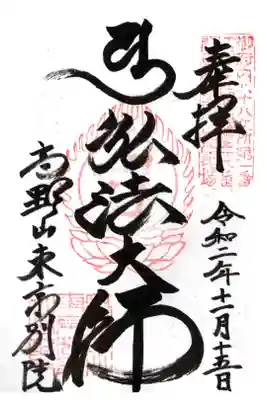 奉拝
令和二年十一月十五日
弘法大師
高野山東京別院